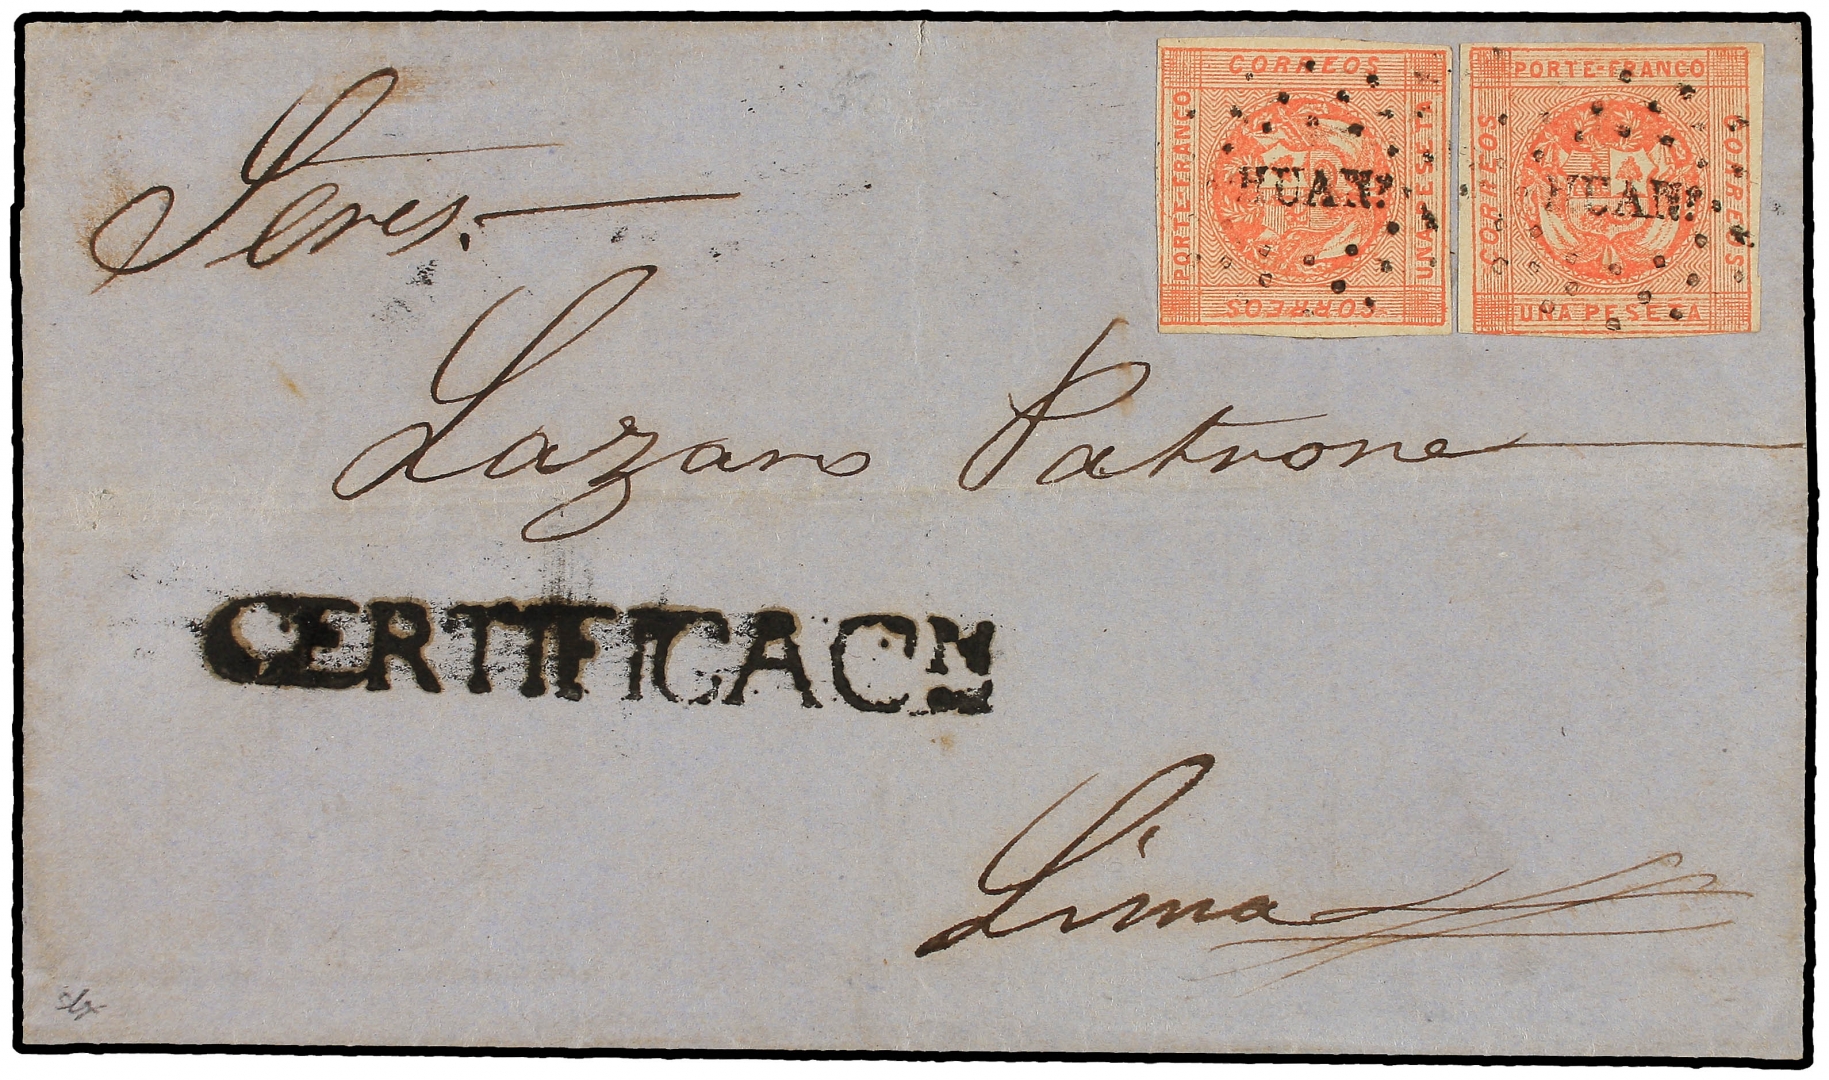 CORREOS
PORTE-FRANCO
UNA PESETA
CORREOS
HUANº
PORTE-FRANCO
CORREOS
CORREOS
UNA PESETA
HUANº
Sres.
Lazaro Patrone
CERTIFICACN
Lima